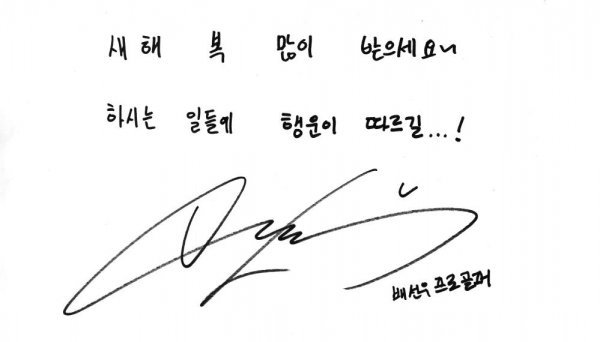 새해 복 많이 받으세요~
하시는 일들에 행운이 따르길...!
배선우 프로골퍼